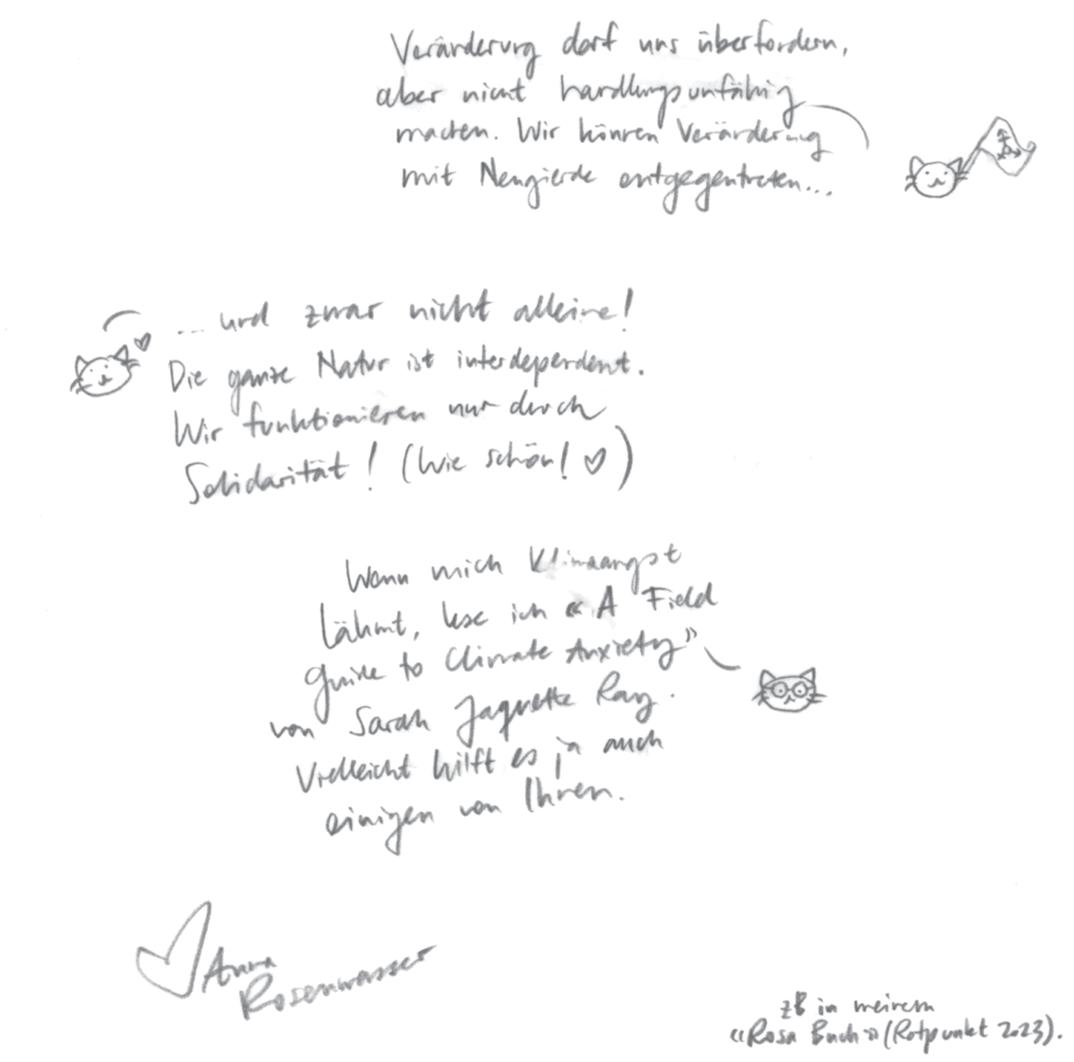 Veränderung darf uns überfordern,
aber nicht handlungsunfähig
machen. Wir können Veränderung
mit Neugierde entgegentreten...
... und zwar nicht alleine!
Die ganze Natur ist interdependent.
Wir funktionieren nur durch
Solidarität! (Wie schön! ♡)
Wenn mich Klimaangst
lähmt, lese ich «A Field
guide to Climate Anxiety»
von Sarah Jaquette Ray.
Vielleicht hilft es ja auch
einigen von Ihnen.
Anna
Rosenwasser
zB in meinem
«Rosa Buch» (Rotpunkt 2023).